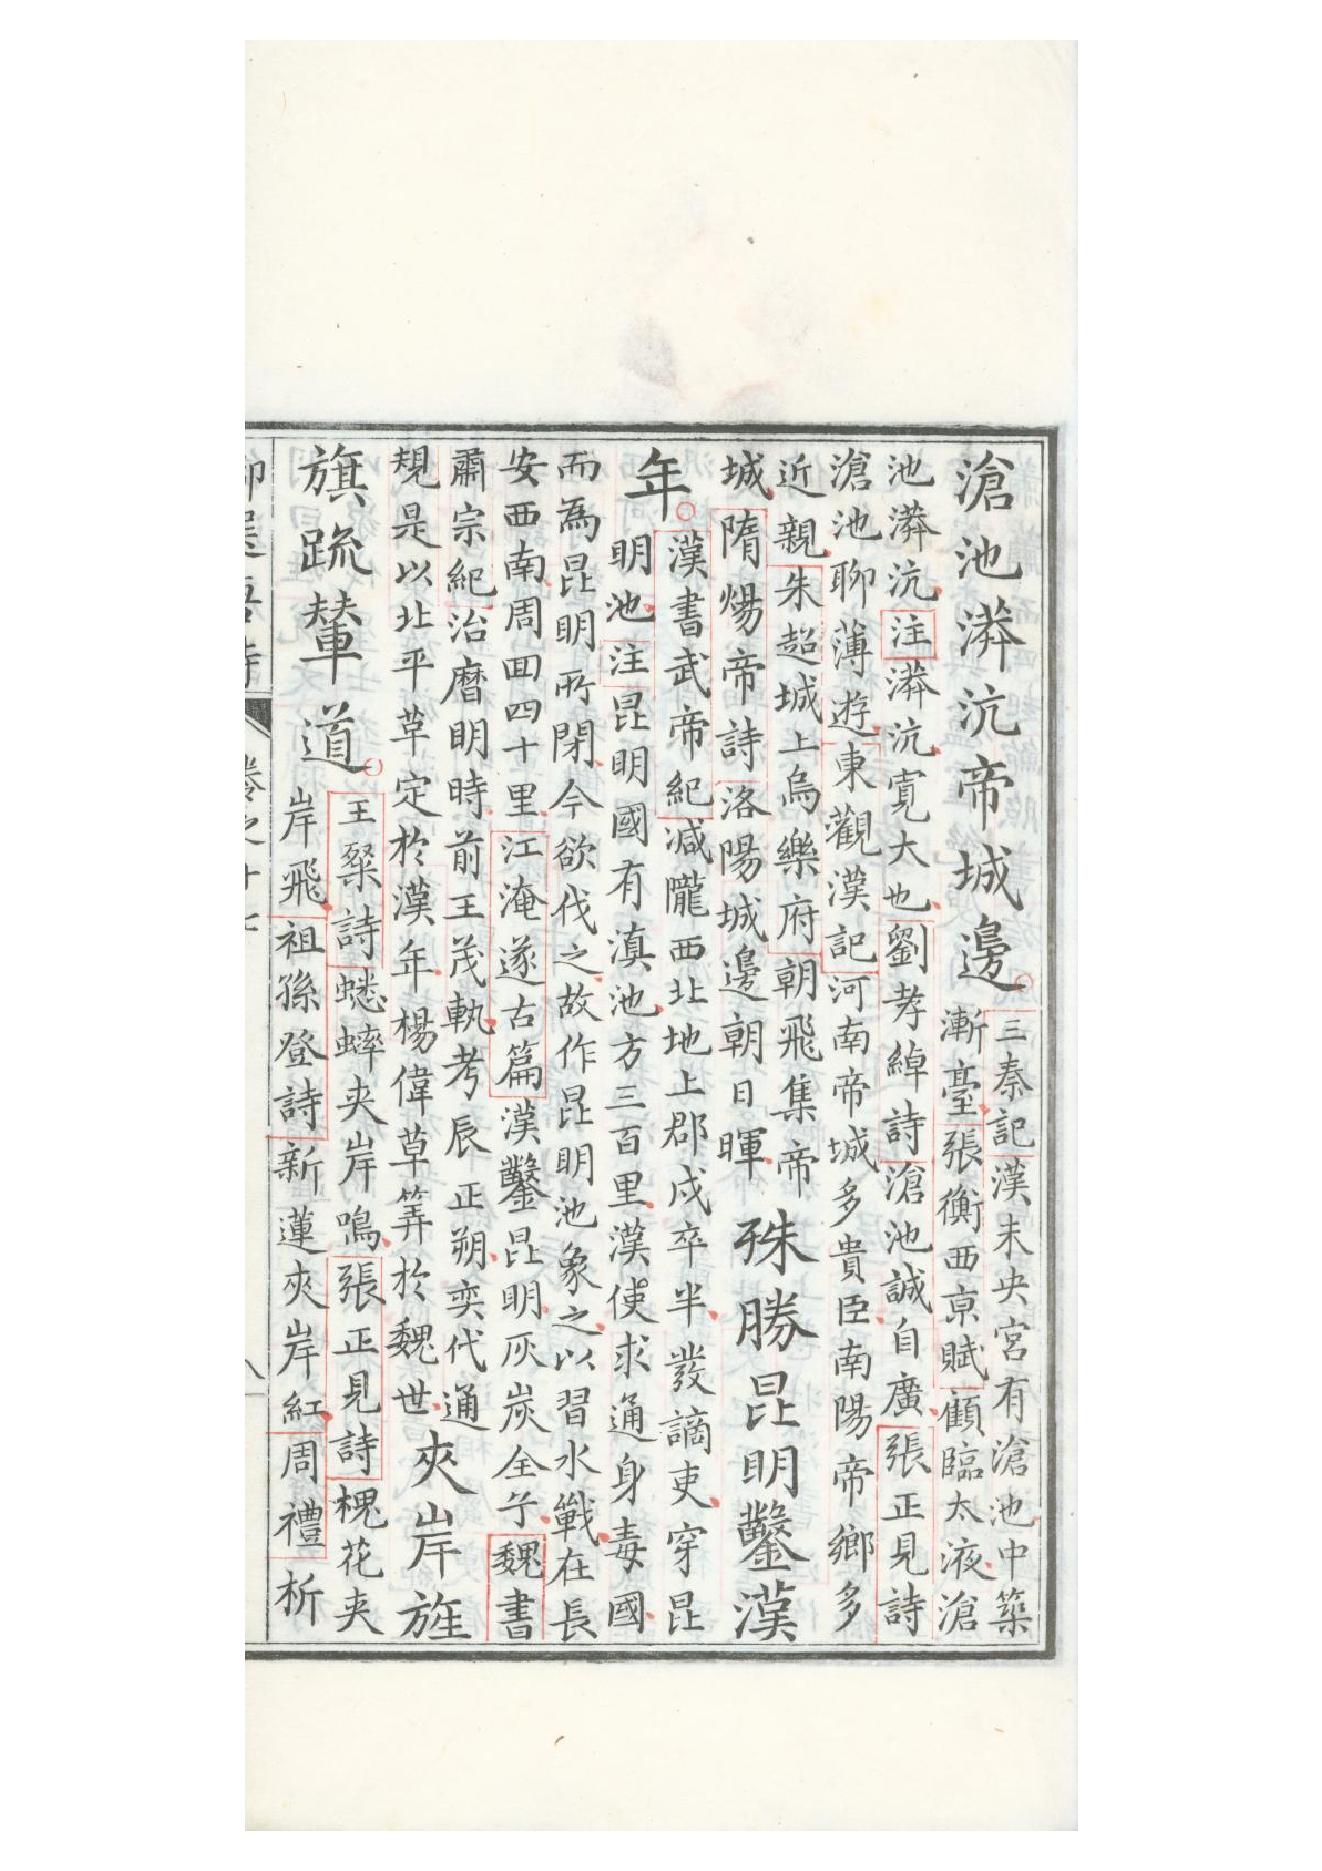 滄池漭沆帝城邊
三秦記漢未央宮有滄池中築
漸臺張衡西京賦顧臨太液滄
池漭沆注漭沆寛大也劉孝綽詩滄池誠自廣張正見詩
滄池聊薄遊東觀漢記河南帝城多貴臣南陽帝鄉多
近親朱超城上烏樂府朝飛集帝
城隋煬帝詩洛陽城邊朝日暉
殊勝昆明鑿漢
年
漢書武帝紀減隴西北地上郡戍卒半發謫吏穿昆
明池注昆明國有滇池方三百里漢使求通身毒國
而為昆明所閉今欲伐之故作昆明池象之以習水戰在長
安西南周囬四十里江淹遂古篇漢鑿昆明灰炭全兮魏書
肅宗紀治曆明時前王茂軌考辰正朔奕代通
規是以北平草定於漢年楊偉草筭於魏世
夾岸旌
旗疏輦道
王粲詩蟋蟀夾岸鳴張正見詩槐花夾
岸飛祖孫登詩新蓮夾岸紅周禮析